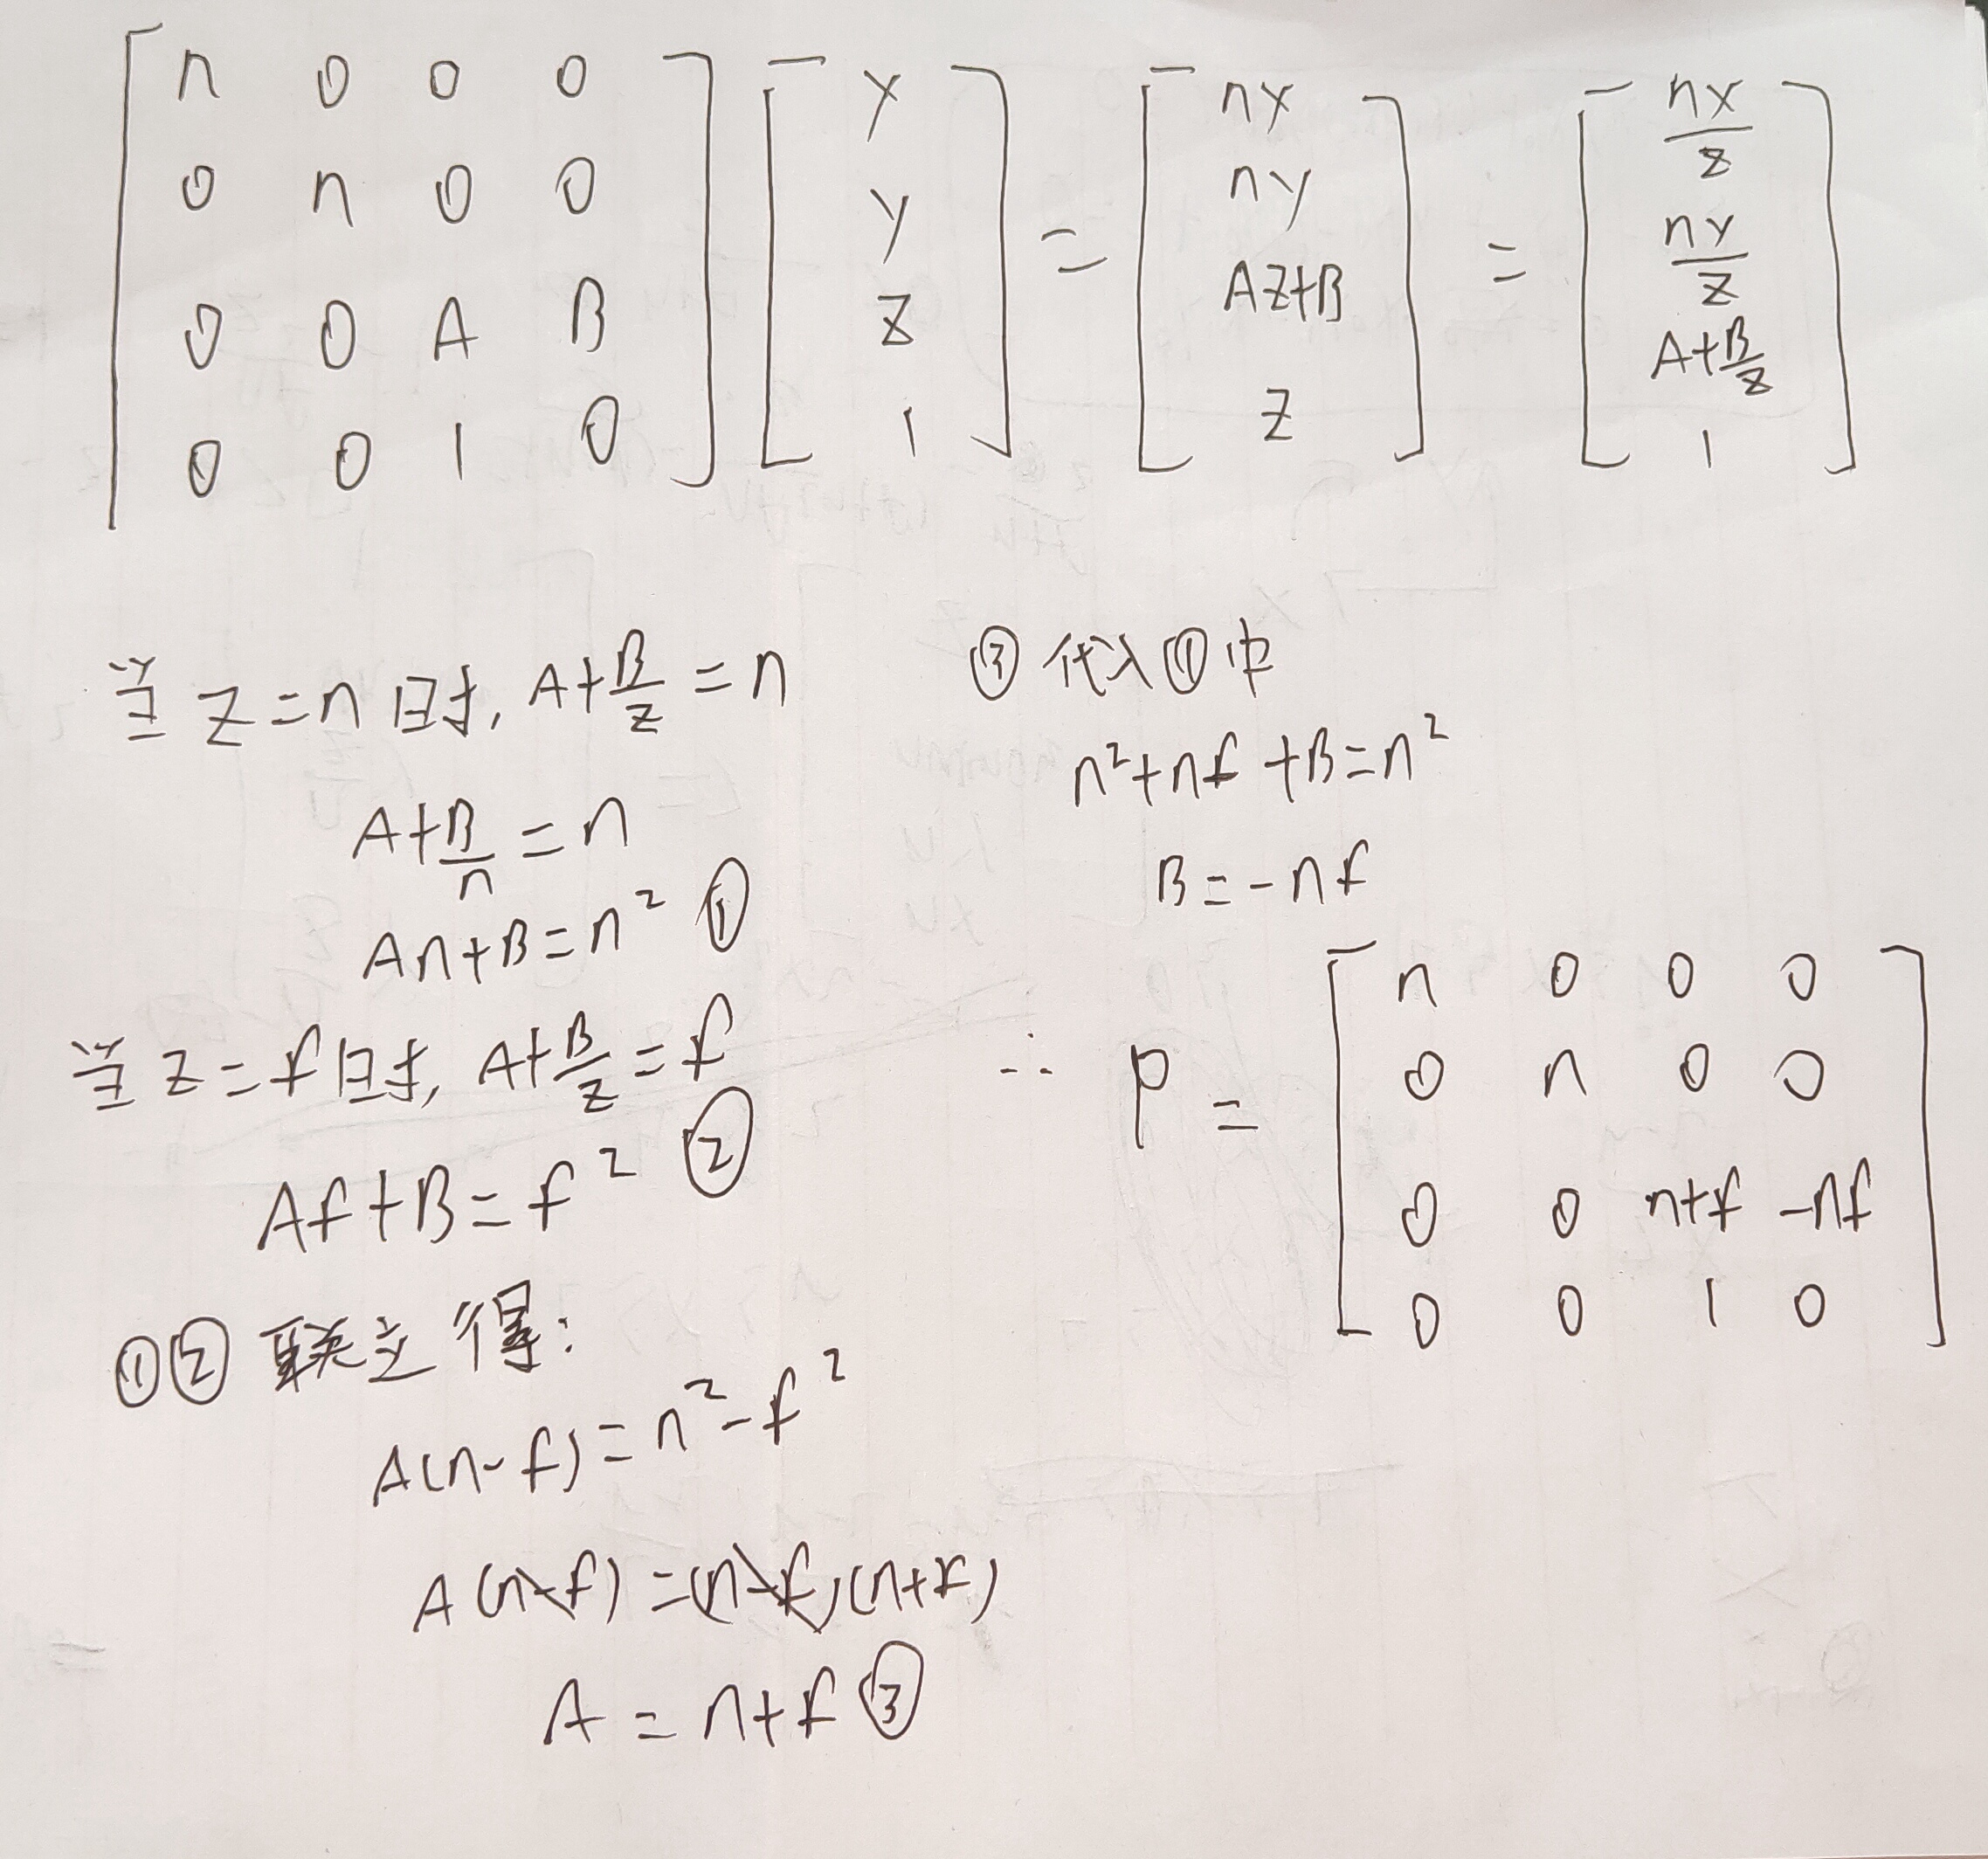 [n 0 0 0; 0 n 0 0; 0 0 A B; 0 0 1 0] [x; y; z; 1] = [nx; ny; Az+B; z] = [nx/z; ny/z; A+B/z; 1]
当 z=n 时, A+B/z=n
A+B/n=n
An+B=n² ①
当 z=f 时, A+B/z=f
Af+B=f² ②
①② 联立得:
A(n-f)=n²-f²
A(n-f)=(n-f)(n+f)
A=n+f ③
③ 代入 ① 中
n²+nf+B=n²
B=-nf
∴ P=[n 0 0 0; 0 n 0 0; 0 0 n+f -nf; 0 0 1 0]